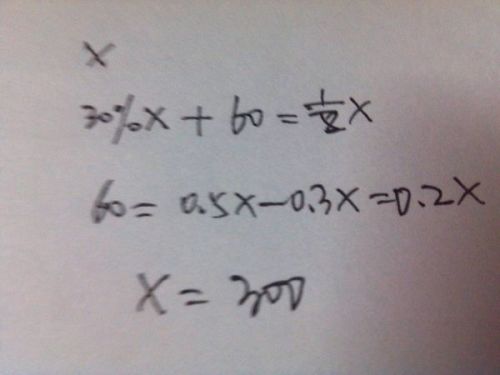 x
30%x + 60 = 1/2 x
60 = 0.5x - 0.3x = 0.2x
x = 300